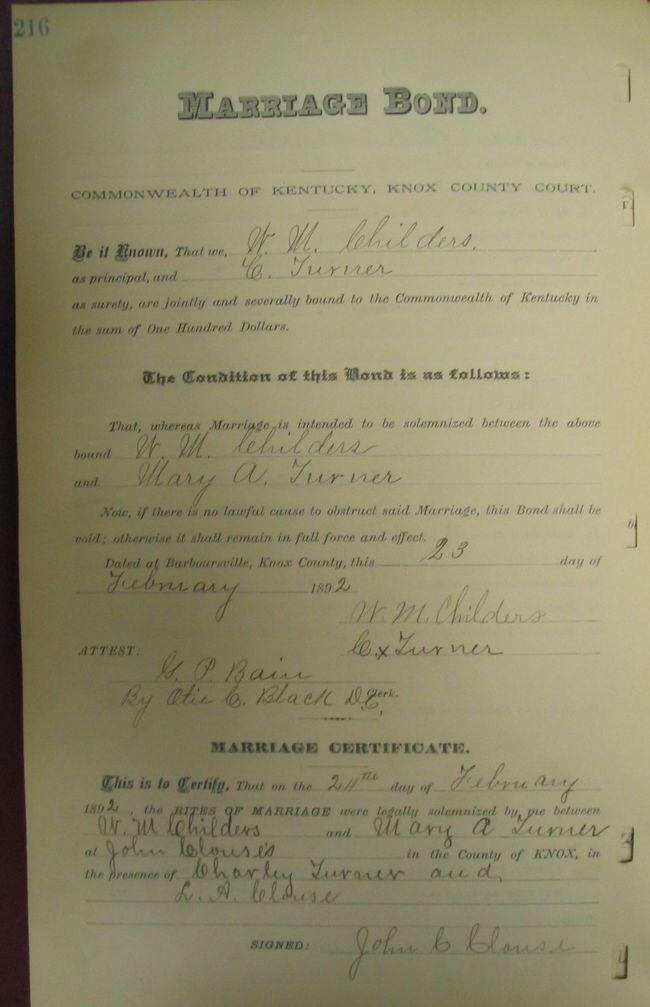 216
MARRIAGE BOND.
COMMONWEALTH OF KENTUCKY, KNOX COUNTY COURT.
Be it Known, That we, W. M. Childers,
as principal, and C. Turner
as surety, are jointly and severally bound to the Commonwealth of Kentucky in
the sum of One Hundred Dollars.
The Condition of this Bond is as follows:
That, whereas Marriage is intended to be solemnized between the above
bound W. M. Childers
and Mary A. Turner
Now, if there is no lawful cause to obstruct said Marriage, this Bond shall be
void; otherwise it shall remain in full force and effect.
Dated at Barboursville, Knox County, this 23 day of
February 1892
W. M. Childers
ATTEST: C. x Turner
G. P. Bain
By Otie C. Black D.C. Clerk.
MARRIAGE CERTIFICATE.
This is to Certify, That on the 24th day of February
1892, the RITES OF MARRIAGE were legally solemnized by me between
W. M Childers and Mary A Turner
at John Clouses in the County of KNOX, in
the presence of Charley Turner and
L. A. Clouse
SIGNED: John C Clouse